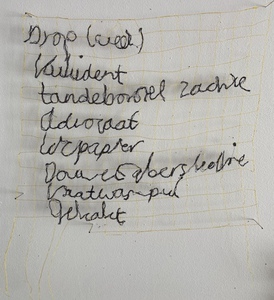 Drop (veel)
Kukident
tandeborstel zachte
Advocaat
Wcpapier
Douwe Egberts koffie
Vaatwas
Gehakt